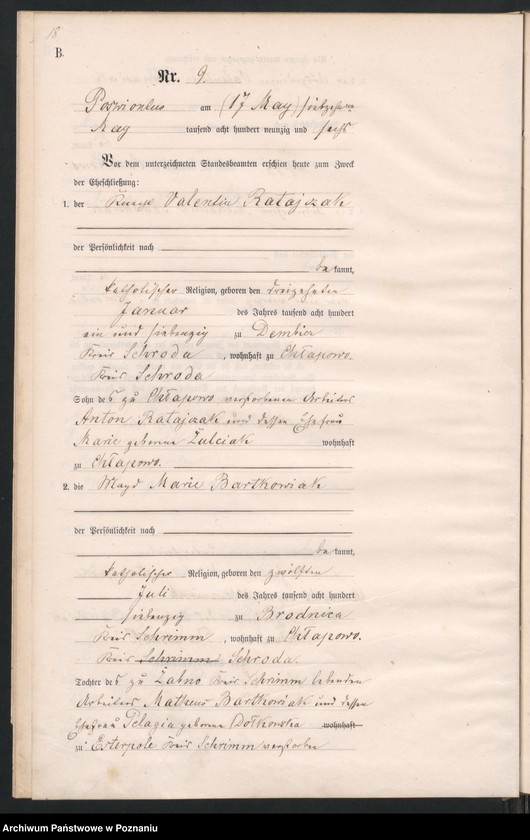 18
B.
Nr. 9.
am (17 May) siebzehn
May tausend acht hundert neunzig und sechs
Vor dem unterzeichneten Standesbeamten erschien heute zum Zweck
der Eheschließung:
1. der Knecht Valentin Ratajczak
der Persönlichkeit nach
bekannt,
katholischer Religion, geboren den dreizehnten
Januar des Jahres tausend acht hundert
ein und siebenzig zu Dembicz
Kreis Schroda, wohnhaft zu Chłapowo.
Kreis Schroda
Sohn des zu Chłapowo verstorbenen Arbeiters
Anton Ratajczak und dessen Ehefrau
Marie geborene Zulciak wohnhaft
zu Chłapowo.
2. die Magd Marie Bartkowiak
der Persönlichkeit nach
bekannt,
katholischer Religion, geboren den zwölften
Juli des Jahres tausend acht hundert
siebenzig zu Brodnica
Kreis Schrimm, wohnhaft zu Chłapowo.
Kreis Schrimm Schroda.
Tochter des zu Żabno Kreis Schrimm lebenden
Arbeiters Matheus Bartkowiak und dessen
Ehefrau Pelagia geborene wohnhaft
zu Esterpole Kreis Schrimm verstorben
Archiwum Państwowe w Poznaniu